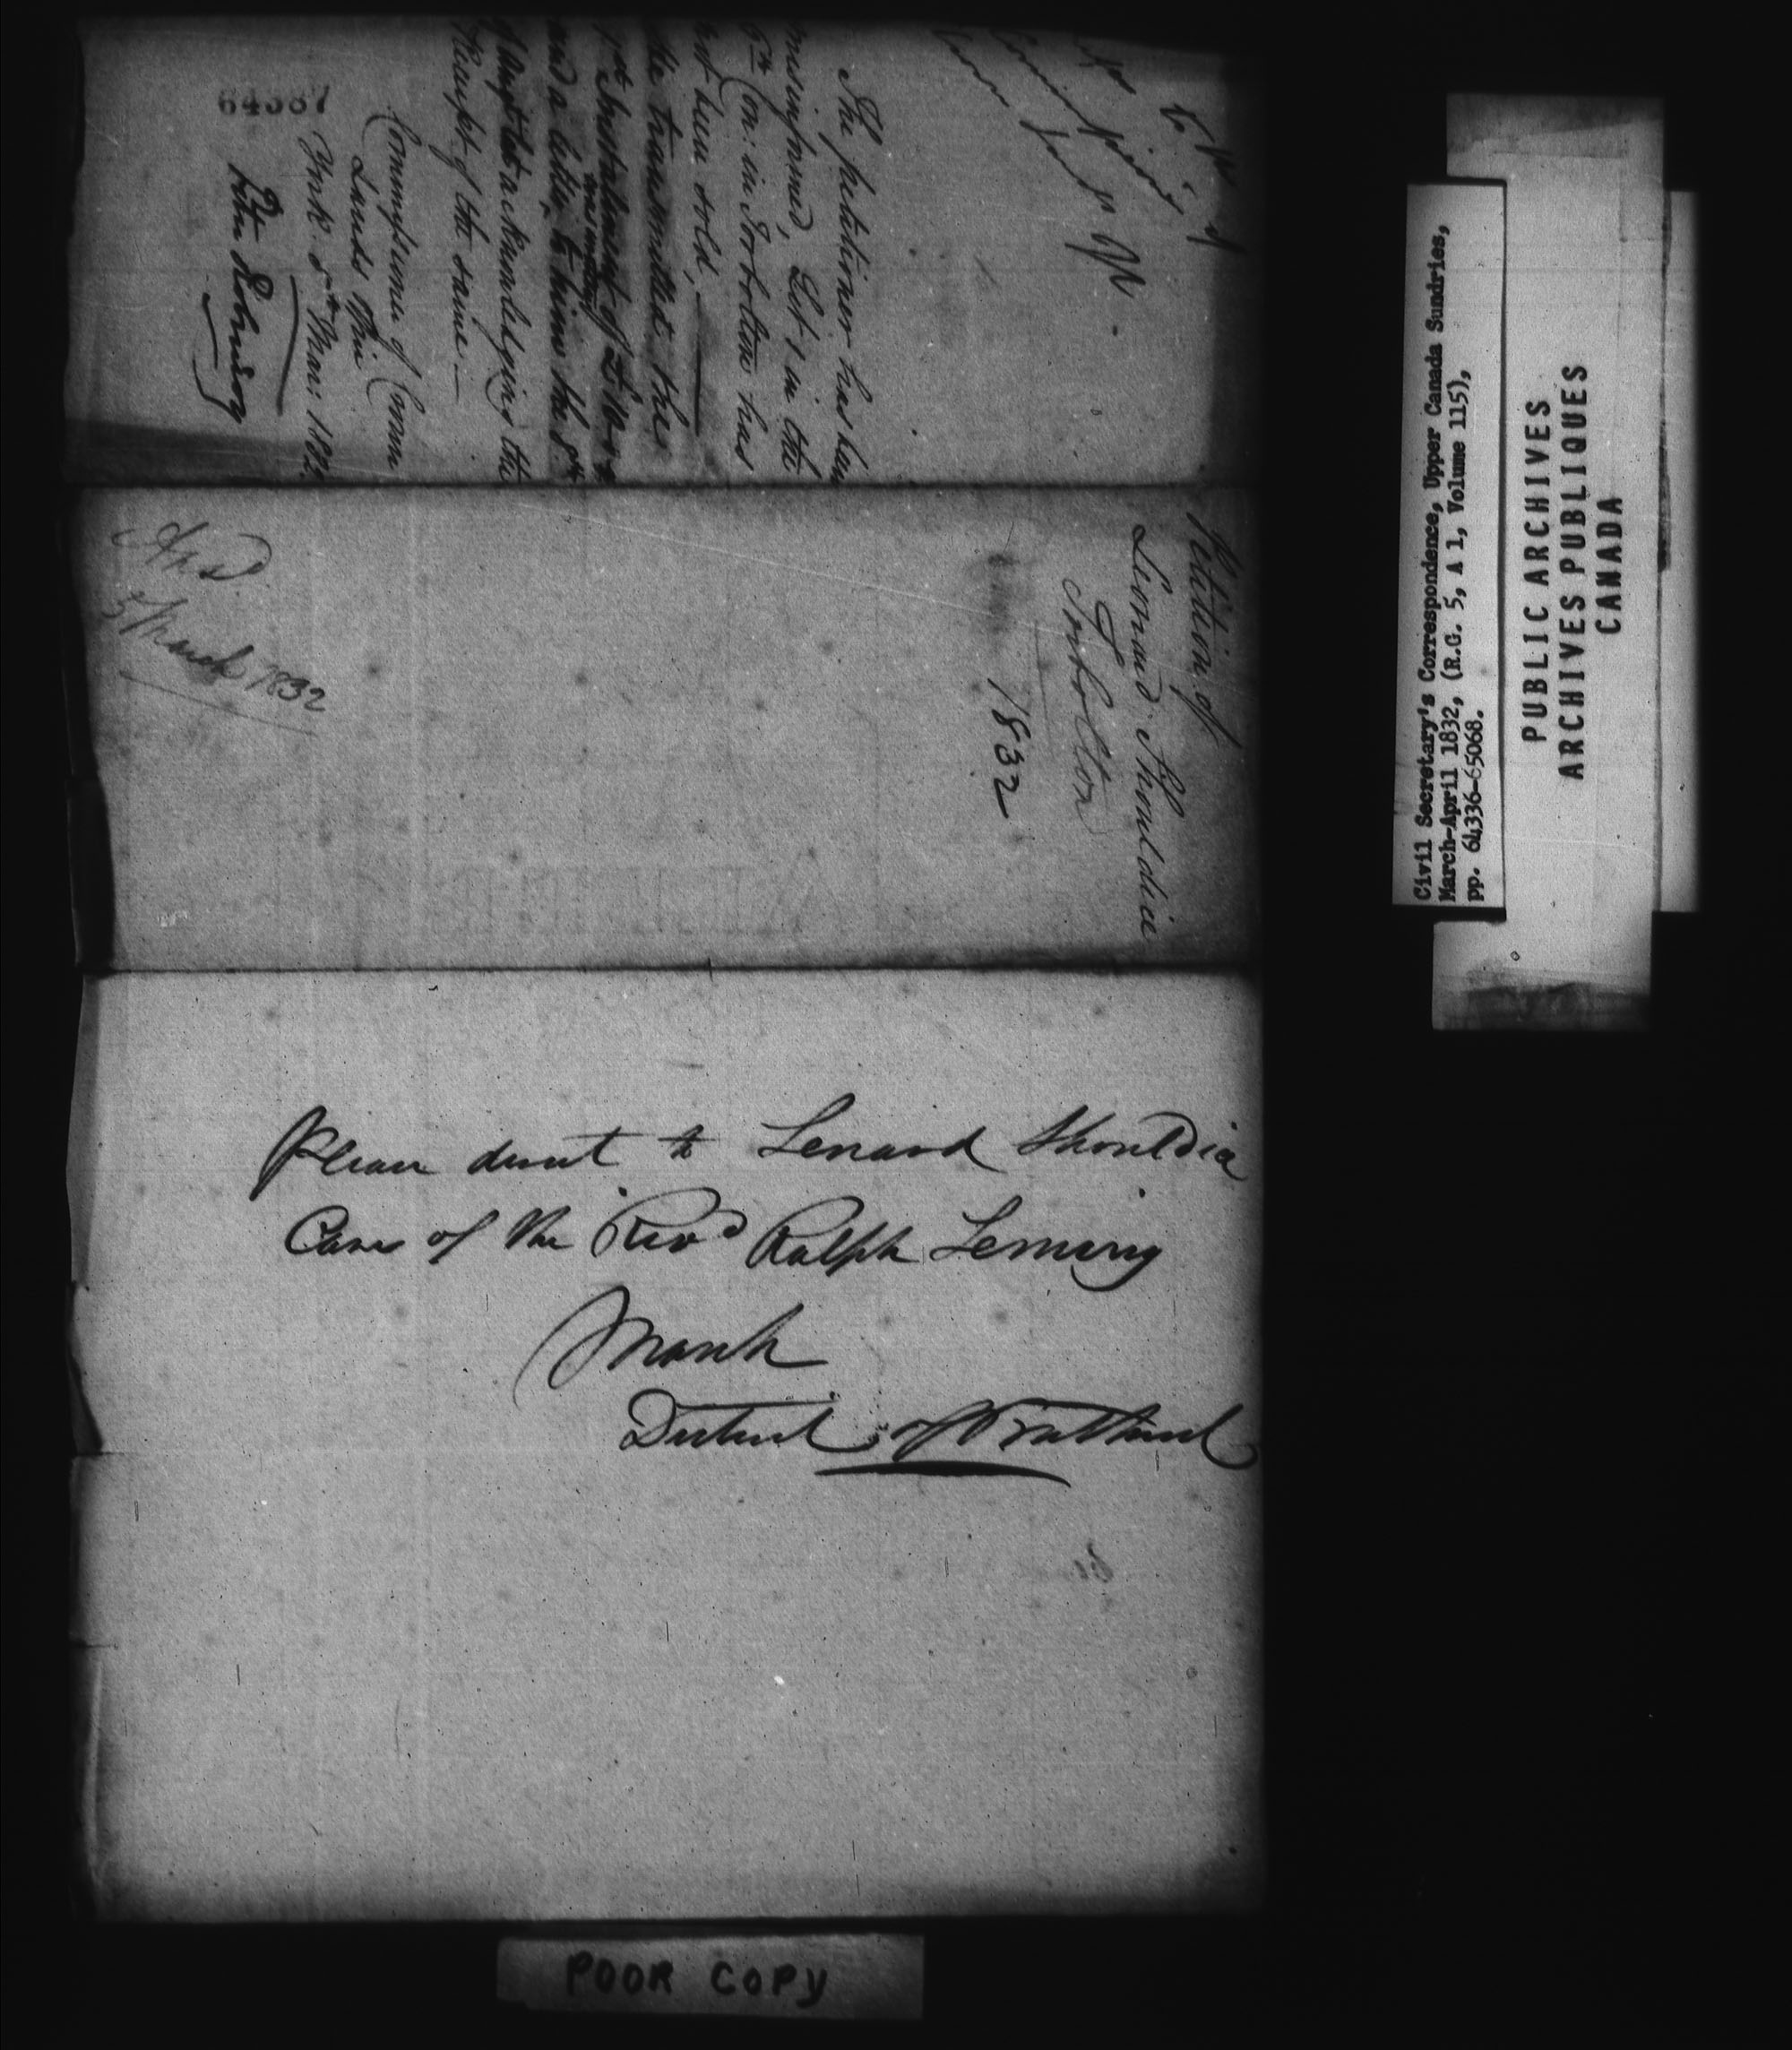 The petitioner has been
misinformed, Lot 1 in the
5th Con: in Torbolton has
not been sold,
He transmitted the
1st Instalment of £
and a letter to him the 8th
of acknowledging the
Receipt of the same.—
Commissioner of Crown
Lands Office
York 5th Mar: 1832
Peter Robinson
64387
Petition of
Leonard Shouldice
Torbolton
1832
Ansd.
5 March 1832
Please direct to Lenard Shouldice
Care of the Revd Ralph Leming
March
District of Bathurst
Civil Secretary's Correspondence, Upper Canada Sundries,
March-April 1832, (R.G. 5, A 1, Volume 115),
pp. 64336-65068.
PUBLIC ARCHIVES
ARCHIVES PUBLIQUES
CANADA
POOR COPY